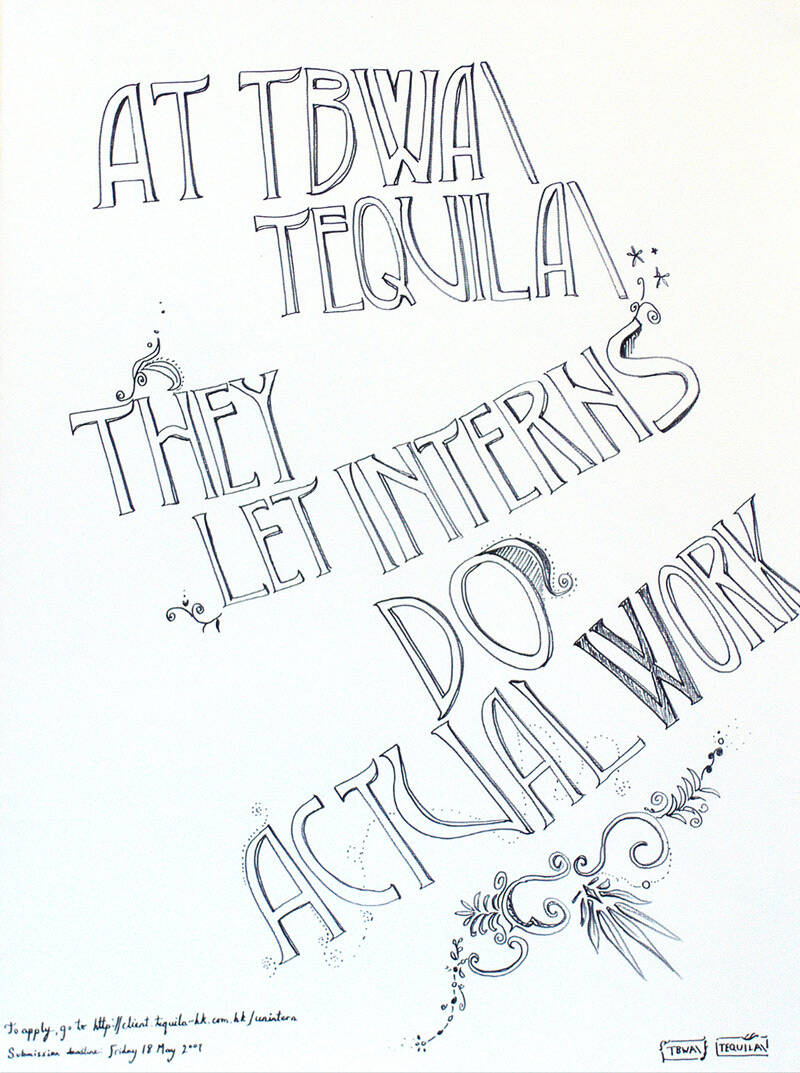 AT TBWA\
TEQUILA\
THEY
LET INTERNS
DO
ACTUAL WORK
To apply, go to http://client.tequila-hk.com.hk/unintern
Submission deadline: Friday 18 May 2007
TBWA\ TEQUILA\